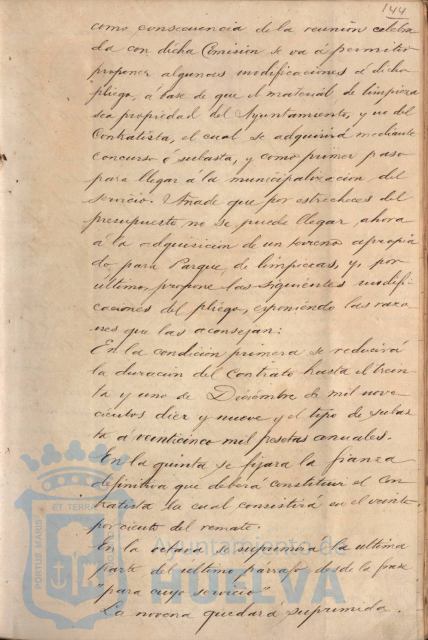 144
como consecuencia de la reunión celebra
da con dicha Comision se va á permitir
proponer algunas modificaciones á dicho
pliego, á base de que el material de limpieza
sea propiedad del Ayuntamiento, y no del
Contratista, el cual se adquirirá mediante
concurso ó subasta, y como primer paso
para llegar á la municipalizacion del
servicio. Añade que por estrecheces del
presupuesto, no se puede llegar ahora
á la adquisicion de un terreno apropia
do para Parque de limpiezas, y, por
último, propone las siguientes modifi-
caciones del pliego, exponiendo las razo
nes que las aconsejan:
En la condición primera se reducirá
la duración del Contrato hasta el trein
ta y uno de Diciembre de mil nove
cientos diez y nueve y el tipo de subas
ta a veinticinco mil pesetas anuales.
En la quinta se fijara la fianza
definitiva que deberá constituir el con
tratista la cual consistirá en el veinte
por ciento del remate.
En la octava se suprimirá la ultima
parte del ultimo párrafo desde la frase
"para cuyo servicio"
La novena quedará suprimida.
PORTUS MARIS ET TERRAE
Ayuntamiento de
HUELVA